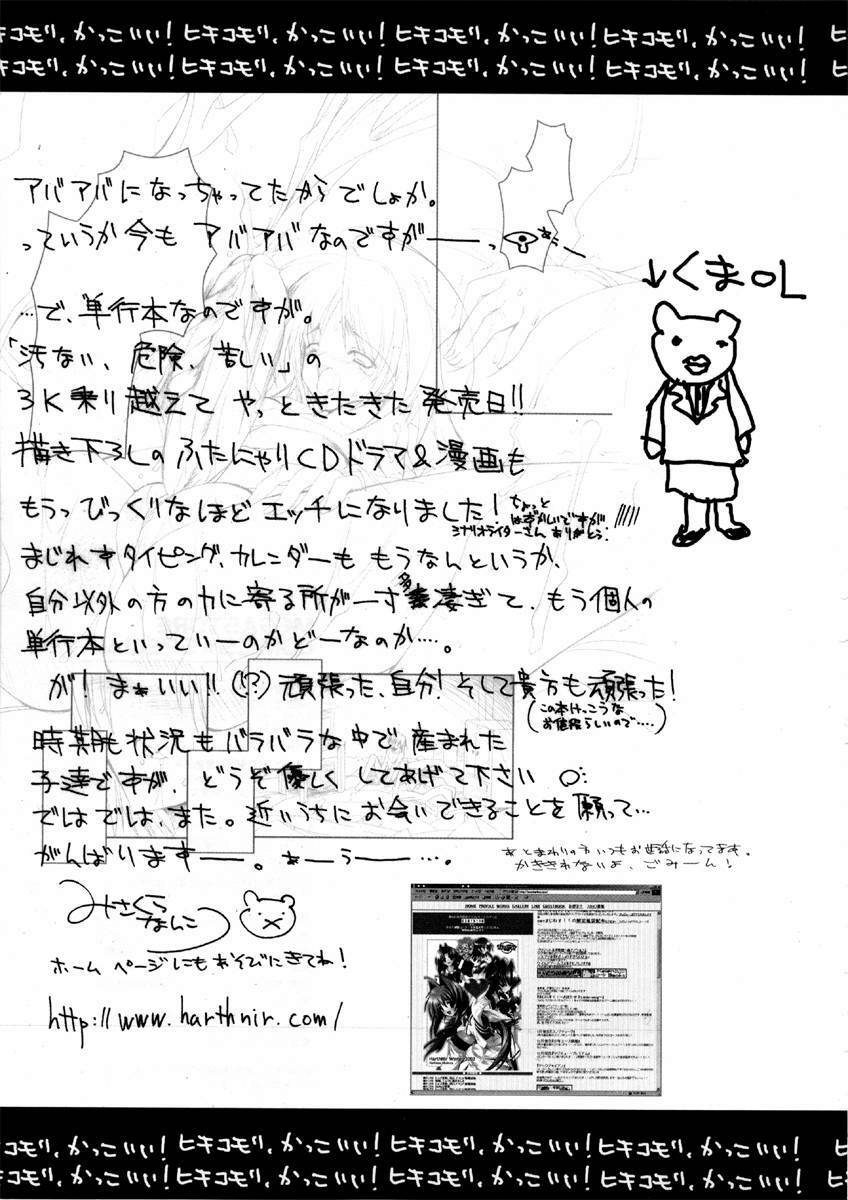 ヒキコモリ、かっこいい!ヒキコモリ、かっこいい!ヒキコモリ、かっこいい!ヒキコモリ、かっこいい! ヒ
ヒキコモリ、かっこいい!ヒキコモリ、かっこいい!ヒキコモリ、かっこいい!ヒキコモリ、かっこいい! ヒ
アバアバになっちゃってたからでしょか。
っていうか今も アバアバなのですがーーっ
あぅー
↓くまOL
…で、単行本なのですが。
「汚ない、危険、苦しい」の
3K乗り越えて やっときたきた発売日!!
描き下ろしの ふたにゃりCDドラマ&漫画も
もうっびっくりなほど エッチになりました!
ちょっと
はずかしいですが
シナリオライターさん ありがとう!
まじれすタイピング、カレンダーも もうなんというか、
自分以外の方の力に寄る所が一寸多凄ぎて、もう個人の
単行本といっていーのかどーなのか…。
が! まぁいい!!(!?)頑張った、自分!そして貴方も頑張った!
(この本けっこうな
お値段らしいので…)
時期も状況もバラバラな中で産まれた
子達ですが、どうぞ優しくしてあげて下さい
ではでは、また。近いうちにお会いできることを願って…
がんばりますーー。あーぅーー…。
あとまわりの方いつもお世話になってます。
かききれないよ、ごみーん!
みさくら
なんこつ
ホームページにもあそびにきてね!
http://www.harthnir.com/
HOME PROFILE WORKS GALLERY LINK
HarthNir Works 2002
ヒキコモリ、かっこいい!ヒキコモリ、かっこいい!ヒキコモリ、かっこいい!ヒキコモリ、かっこいい! ヒ
ヒキコモリ、かっこいい!ヒキコモリ、かっこいい!ヒキコモリ、かっこいい!ヒキコモリ、かっこいい! ヒ